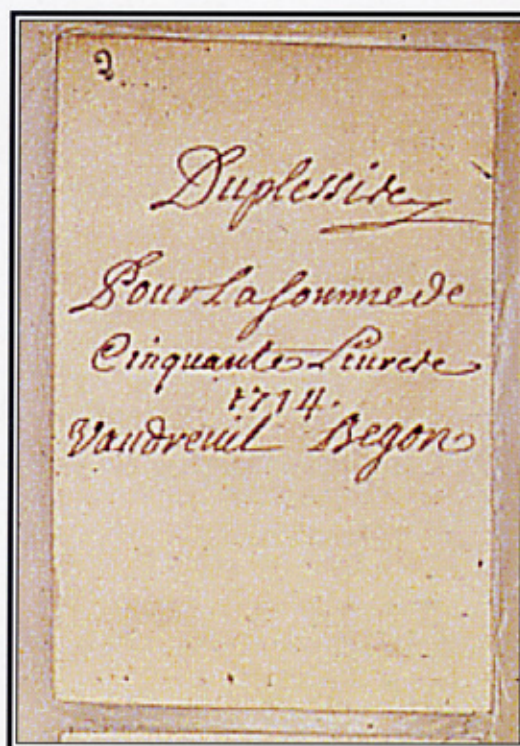 2
Duplessis
Pour la somme de
Cinquante Livres
1714.
Vaudreuil Begon